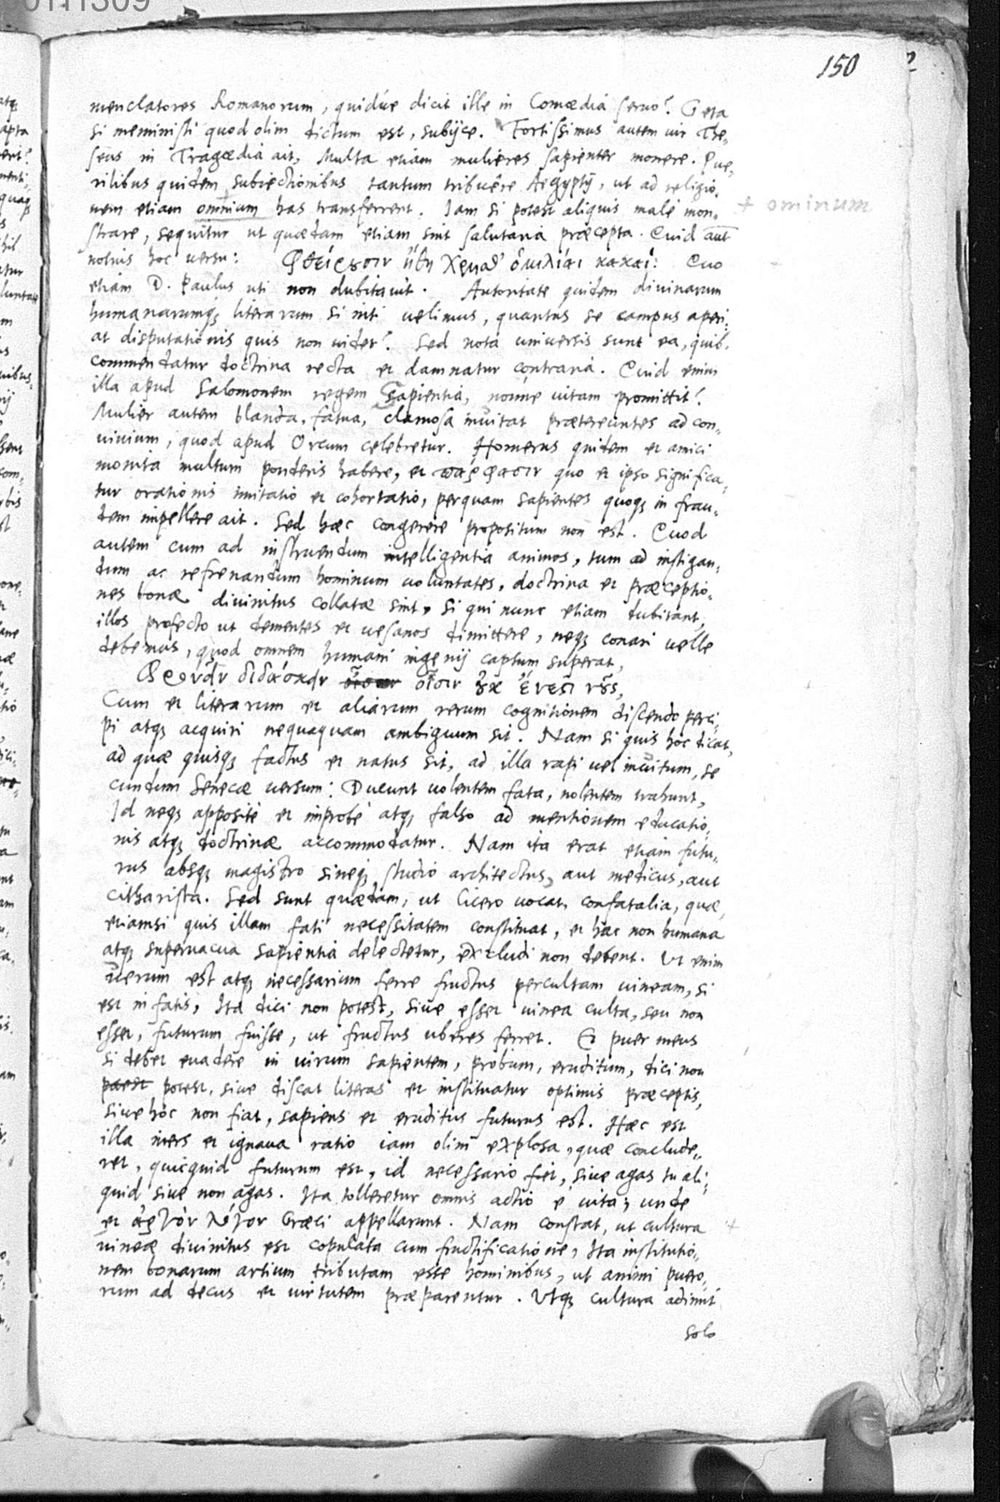 150
menclatores Romanorum, quidue dicit ille in Comœdia seruo? Geta
si meministi quod olim dictum est, subijce. Fortissimus autem uir The-
seus in Tragœdia ait, Multa etiam mulieres sapienter monere. Pue-
rilibus quidem subiectionibus tantum tribuêre Aegyptij, ut ad religio-
nem etiam omnium has transferrent. Iam si potest aliquis malè mon-
+ ominum
strare, sequitur ut quædam etiam sint salutaria præcepta. Quid aut
notius hoc uersu: Φθείρουσιν ἤθη χρησθ' ὁμιλίαι κακαί: Quo
etiam D. Paulus uti non dubitauit. Autoritate quidem diuinarum
humanarumq; literarum si niti uelimus, quantus se campus aperi-
at disputationis quis non uidet? Sed nota uniuersis sunt ea, quib.
commendatur doctrina recta et damnatur contraria. Quid enim
illa apud Salomonem regem Sapientia, nonne uitam promittit?
Mulier autem blanda, fatua, clamosa inuitat prætereuntes ad con-
uiuium, quod apud Orcum celebretur. Homerus quidem et amici
monita multum ponderis habere, et παρφασιν quo et ipso significa-
tur orationis imitatio et cohortatio, perquam sapientes quoq; in frau-
dem impellere ait. Sed hæc congerere propositum non est. Quod
autem cum ad instruendum intelligentia animos, tum ad instigan-
dum ac refrenandum hominum uoluntates, doctrina et præceptio-
nes bonæ diuinitus collatæ sint, si qui nunc etiam dubitant,
illos profecto ut dementes et uesanos dimittere, neq; conari uelle
debemus, quod omnem humani ingenij captum superat,
Φρονεῖν διδάσκειν οἷσιν οὐκ ἔνεστι νοῦς,
Cum et literarum et aliarum rerum cognitionem discendo perci-
pi atq; acquiri nequaquam ambiguum sit. Nam si quis hoc dicat,
ad quæ quisq; factus et natus sit, ad illa rapi uel inuitum, se
cundum Senecæ uersum: Ducunt uolentem fata, nolentem trahunt,
Id neq; appositè et improbè atq; falso ad mentionem educatio-
nis atq; doctrinæ accommodatur. Nam ita erat etiam futu-
rus absq; magistro sineq; studio architectus, aut medicus, aut
citharista. Sed sunt quædam, ut Cicero uocat, confatalia, quæ,
etiamsi quis illam fati necessitatem constituat, et hac non humana
atq; superuacua sapientia delectetur, excludi non debent. Ut enim
uerum est atq; necessarium ferre fructus percultam uineam, si
est in fatis, Ita dici non potest, siue esset uinea culta, seu non
esset, futurum fuisse, ut fructus uberes ferret. Et puer meus
si debet euadere in uirum sapientem, probum, eruditum, dici non
potest, siue discat literas et instituatur optimis præceptis,
siue hoc non fiat, sapiens et eruditus futurus est. Hæc est
illa iners et ignaua ratio iam olim explosa, quæ conclude-
ret, quicquid futurum est, id necessario fiet, siue agas tu ali-
quid siue non agas. Ita tolleretur omnis actio è uita, unde
et ἀργὸν λόγον Græci appellarunt. Nam constat, ut cultura
uineæ diuinitus est copulata cum fructificatione, Ita institutio-
nem bonarum artium tributam esse hominibus, ut animi puero-
rum ad decus et uirtutem præparentur. Utq; cultura adimit
solo